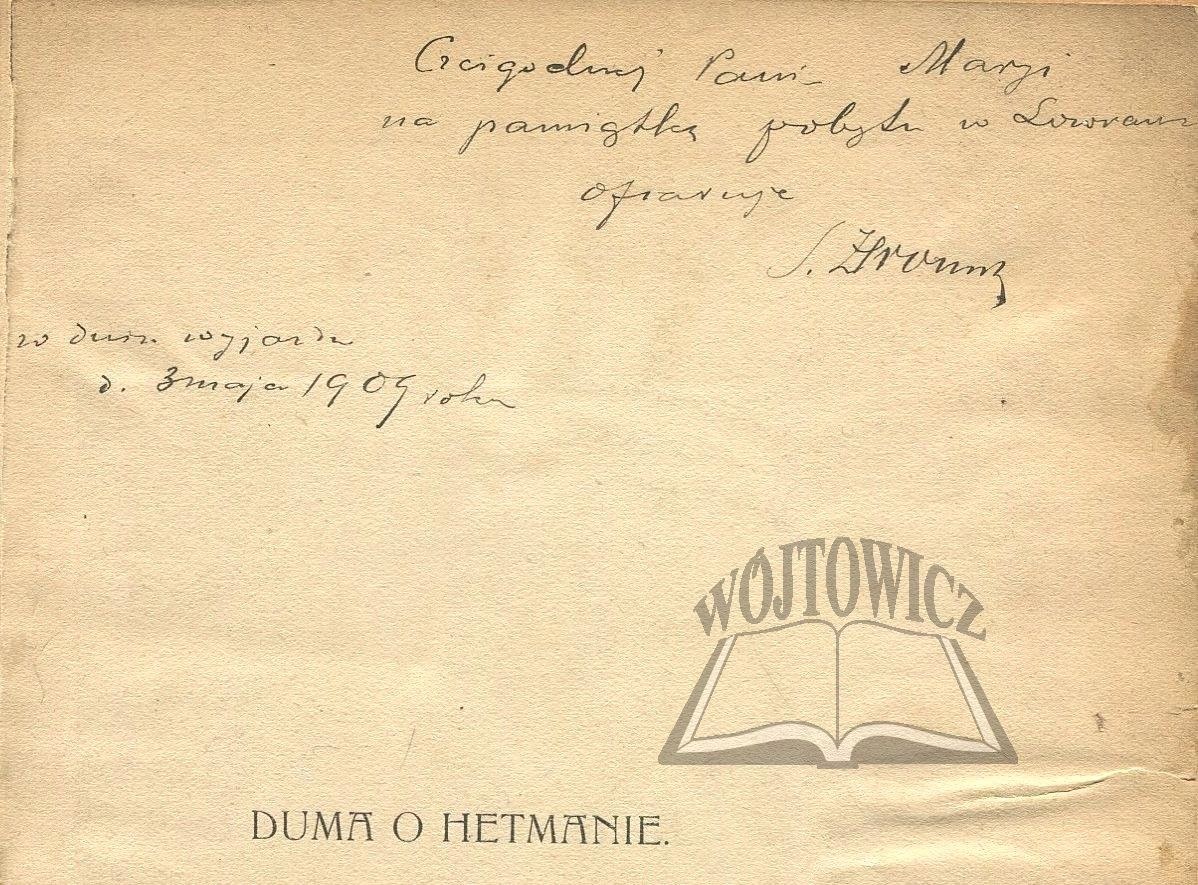 Czcigodnej Pani Maryi
na pamiątkę pobytu w Lovranie
ofiaruje
w dniu wyjazdu
d. 3 maja 1909 roku
WÓJTOWICZ
DUMA O HETMANIE.